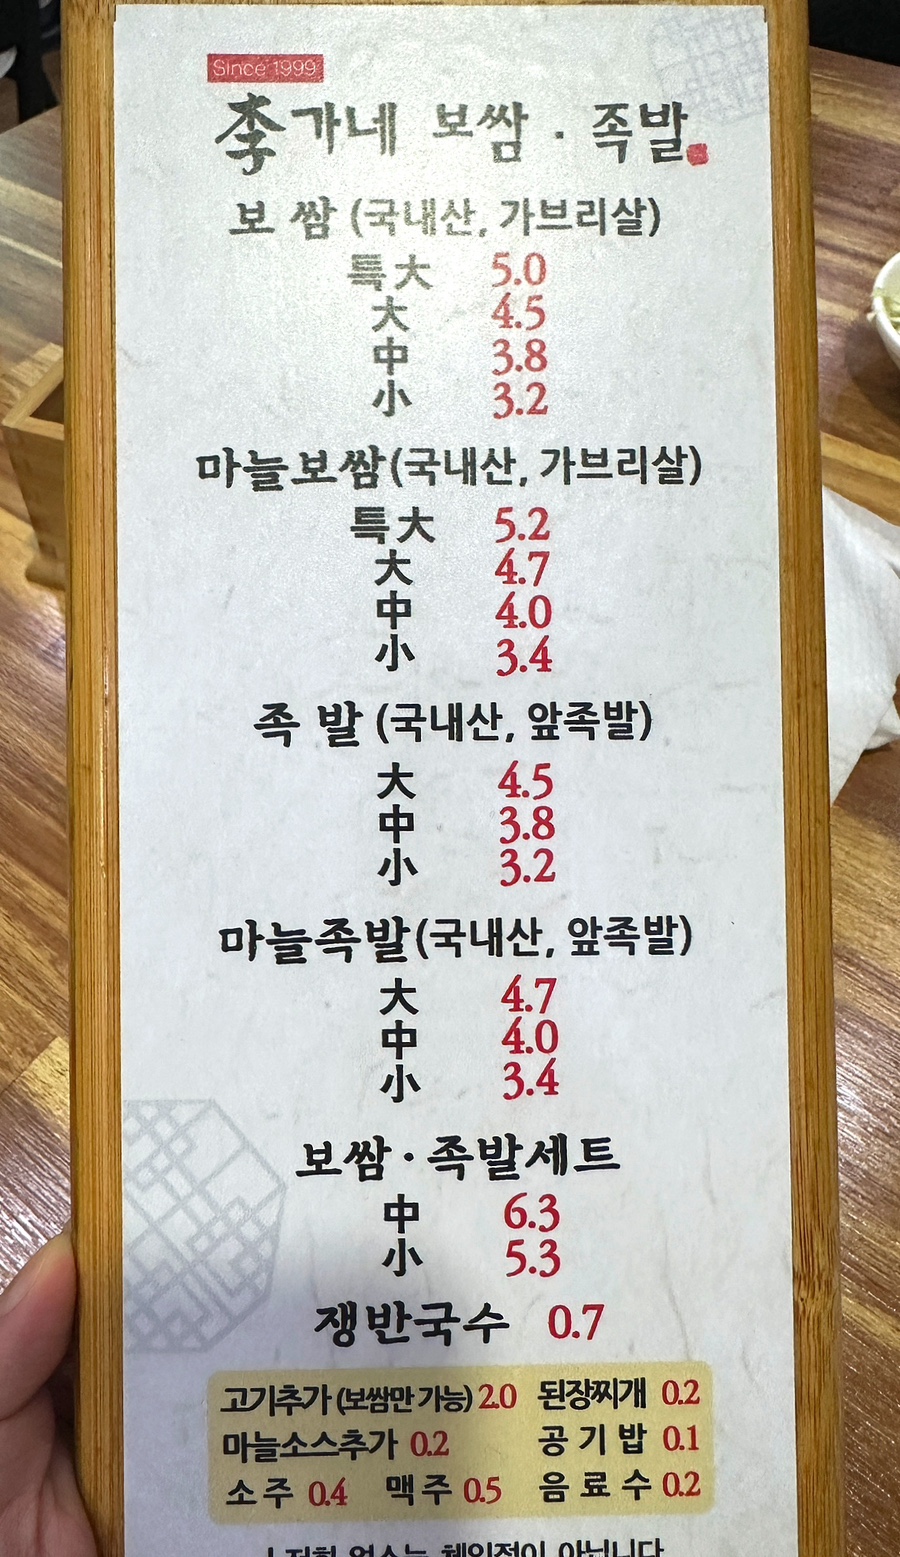 Since 1999
李가네 보쌈 · 족발
보 쌈 (국내산, 가브리살)
특大 5.0
大 4.5
中 3.8
小 3.2
마늘보쌈(국내산, 가브리살)
특大 5.2
大 4.7
中 4.0
小 3.4
족 발 (국내산, 앞족발)
大 4.5
中 3.8
小 3.2
마늘족발(국내산, 앞족발)
大 4.7
中 4.0
小 3.4
보쌈·족발세트
中 6.3
小 5.3
쟁반국수 0.7
고기추가 (보쌈만 가능) 2.0 된장찌개 0.2
마늘소스추가 0.2 공 기 밥 0.1
소 주 0.4 맥 주 0.5 음 료 수 0.2
체인점이 아닙니다